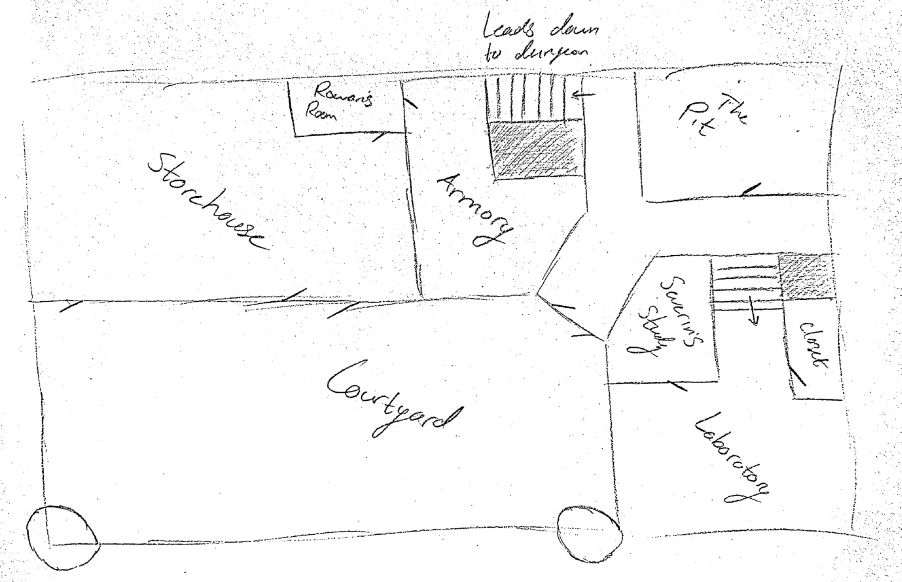 Leads down
to dungeon
Rowan's
Room
The
Pit
Storehouse
Armory
Severin's
Study
closet
Courtyard
Laboratory